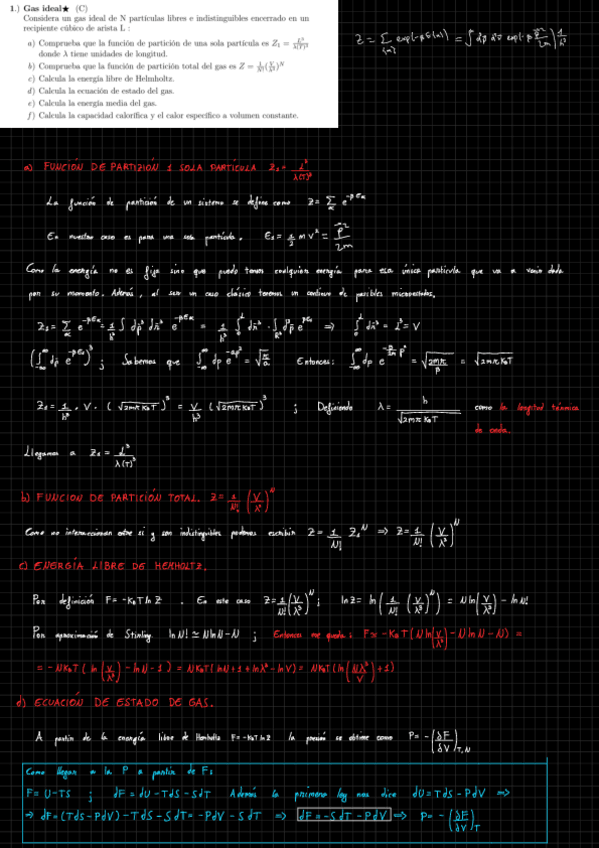 1.) Gas ideal★ (C)
Considera un gas ideal de N partículas libres e indistinguibles encerrado en un
recipiente cúbico de arista L :
a) Comprueba que la función de partición de una sola partícula es Z₁ = L³/λ(T)³
donde λ tiene unidades de longitud.
b) Comprueba que la función de partición total del gas es Z = 1/N! (V/λ³)^N
c) Calcula la energía libre de Helmholtz.
d) Calcula la ecuación de estado del gas.
e) Calcula la energía media del gas.
f) Calcula la capacidad calorífica y el calor específico a volumen constante.
a) FUNCIÓN DE PARTIZIÓN 1 SOLA PARTÍCULA Z₁ = L³/λ(T)³
La función de partición de un sistema se define como Z = Σ e^{-βEα}
En nuestro caso es para una sola partícula. E₁ = 1/2 m v² = p²/2m
Como la energía no es fija sino que puedo tener cualquier energía para esa única partícula que va a venir dada
por su momento. Además, al ser un caso clásico tenemos un continuo de posibles microestados,
Z₁ = Σ e^{-βEα} = 1/h³ ∫ dp³ dr³ e^{-βEα} = 1/h³ ∫ dr³ · ∫ dp³ e^{-βE₁} ⇒ ∫ dr³ = L³ = V
(∫ dp e^{-βE₁})³ ; Sabemos que ∫ dp e^{-ap²} = √(π/a) Entonces: ∫ dp e^{-β/2m p²} = √(2mπ/β) = √(2mπK_BT)
Z₁ = 1/h³ · V · (√(2mπK_BT))³ = V/h³ (√(2mπK_BT))³ ; Definiendo λ = h/√(2mπK_BT) como la longitud térmica
de onda.
Llegamos a Z₁ = L³/λ(T)³
b) FUNCION DE PARTICIÓN TOTAL. Z = 1/N! (V/λ³)^N
Como no interaccionan entre si y son indistinguibles podemos escribir Z = 1/N! Z₁^N ⇒ Z = 1/N! (V/λ³)^N
c) ENERGÍA LIBRE DE HEMHOLTZ.
Por definición F = -K_BT ln Z . En este caso Z = 1/N! (V/λ³)^N ; lnZ = ln(1/N! (V/λ³)^N) = N ln(V/λ³) - ln N!
Por aproximación de Stirling ln N! ≃ N ln N - N ; Entonces me queda: F ≃ -K_BT (N ln(V/λ³) - N ln N - N) =
= -NK_BT (ln(V/λ³) - ln N - 1) = NK_BT (ln N + 1 + lnλ³ - ln V) = NK_BT (ln(Nλ³/V) + 1)
d) ECUACIÓN DE ESTADO DE GAS.
A partir de la energía libre de Hemholtz F = -K_BT ln Z la presión se obtiene como P = -(δF/δV)_{T,N}
Como llegar a la P a partir de F:
F = U - TS ; dF = dU - TdS - SdT Además la primera ley nos dice dU = TdS - PdV ⇒
⇒ dF = (TdS - PdV) - TdS - SdT = -PdV - SdT ⇒ dF = -SdT - PdV ⇒ P = -(δF/δV)_T